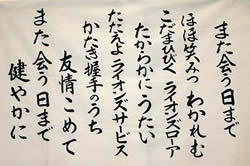 また会う日まで
ほほ笑みつ わかれむ
こだまひびく ライオンズローア
たからかに うたい
たたえよ ライオンズサービス
かたき握手のうち
友情こめて
また会う日まで
健やかに